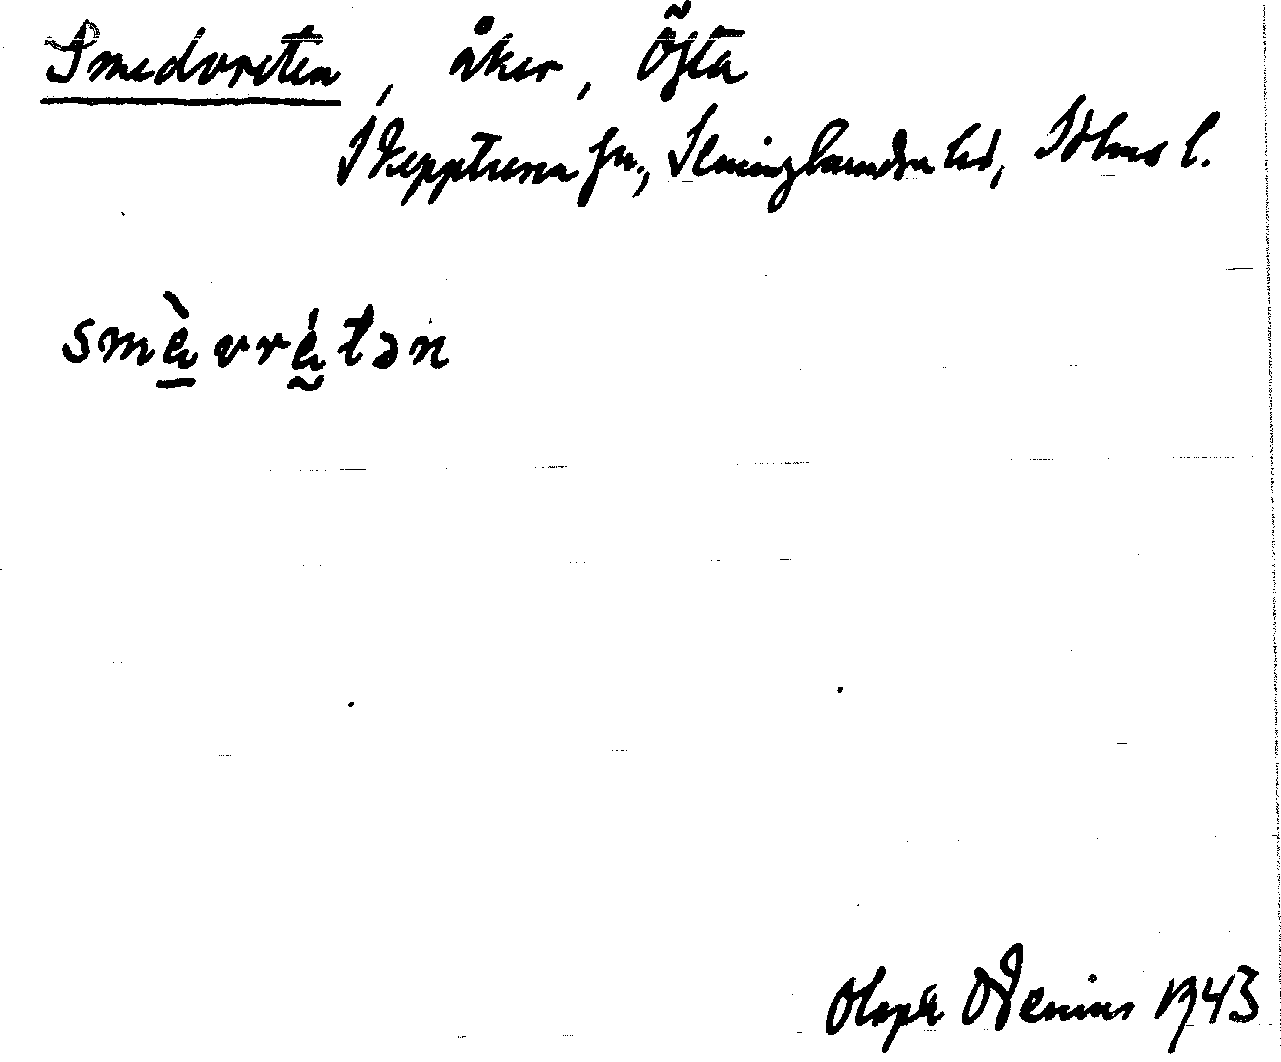 Smedvreten, åker, Östa
Skepptuna sn., Seminghundra hd, Sthms l.
smè̠vrḛ́tən
Olof Odenius 1943